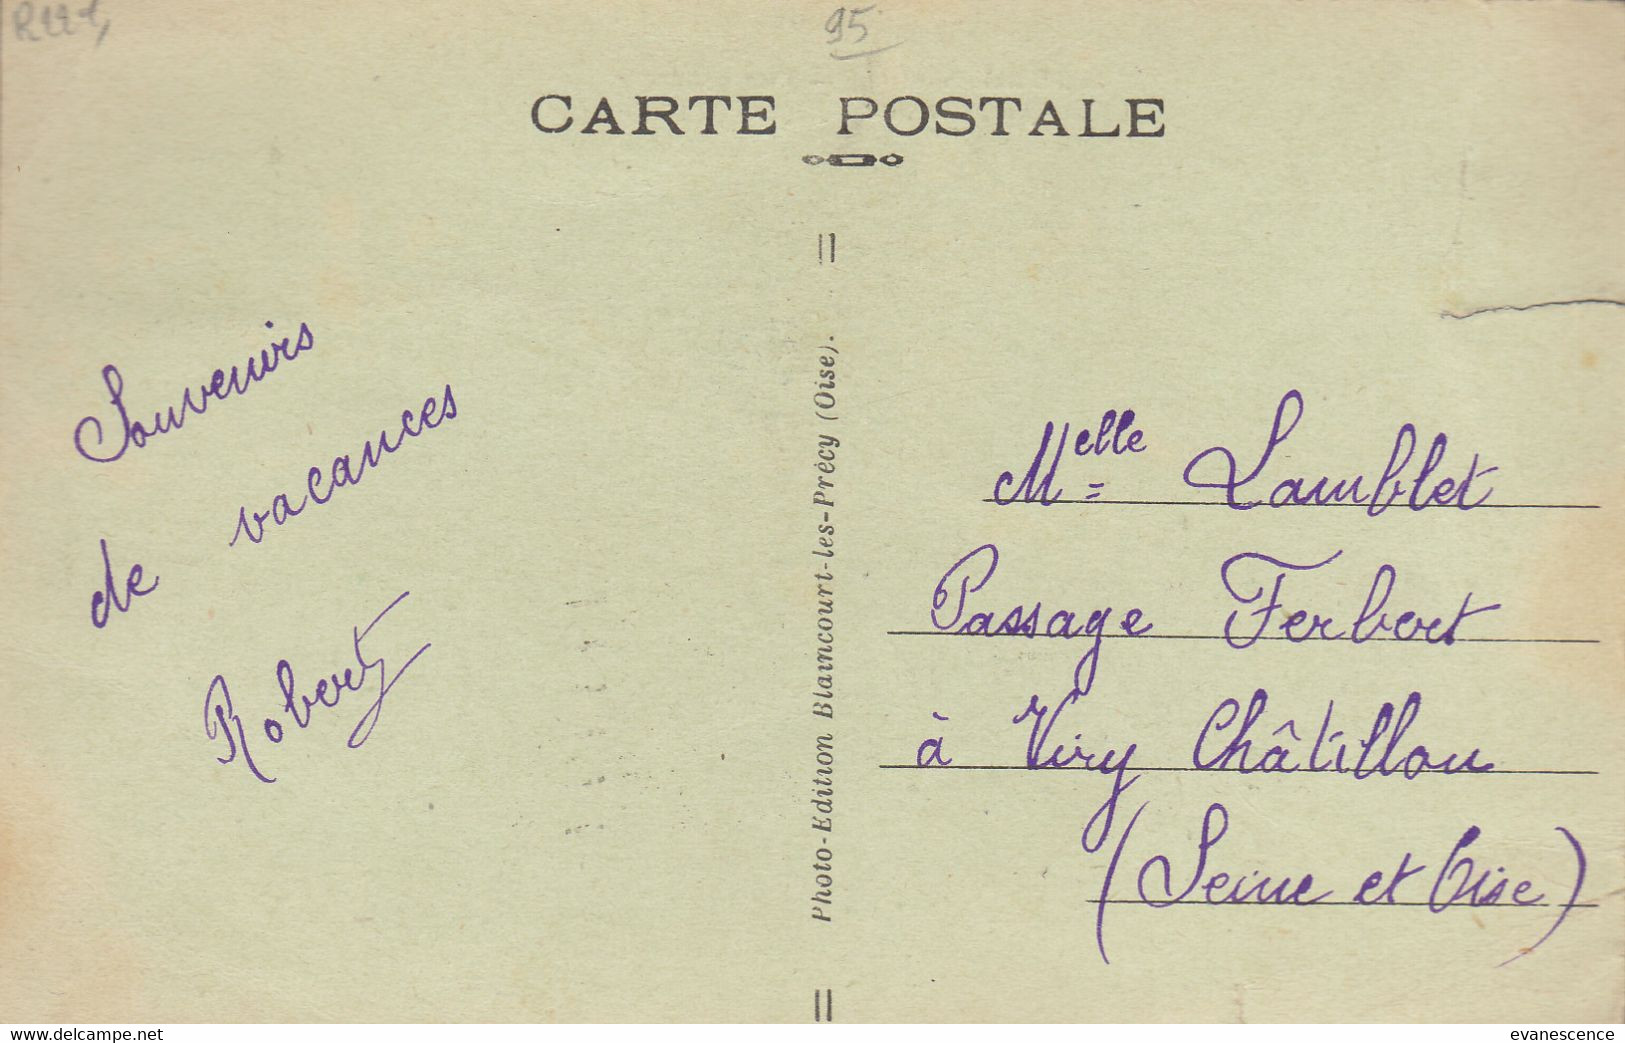 95
CARTE POSTALE
Souvenirs
de vacances
Robert
Photo-Edition Blaincourt-les-Précy (Oise).
Melle Lamblet
Passage Ferbert
à Viry Châtillon
(Seine et Oise)
www.delcampe.net
evanescence